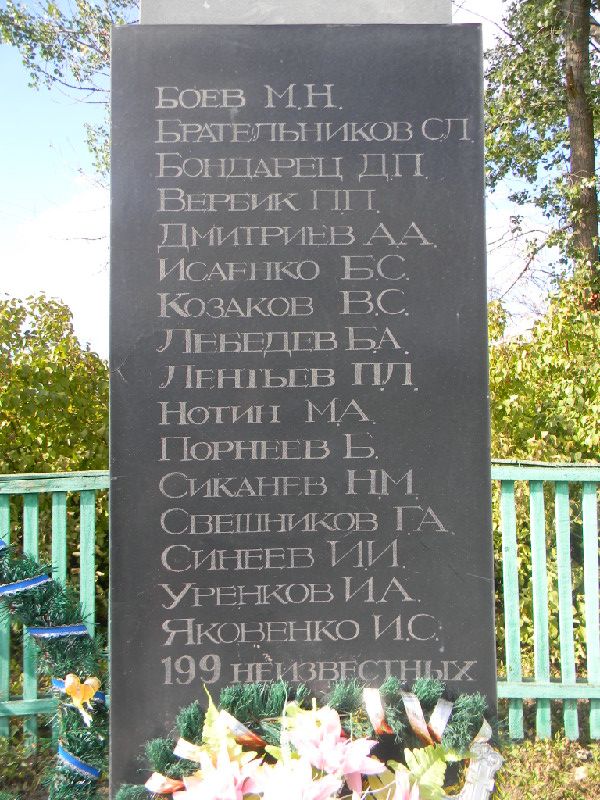 Боев М.Н.
Брательников С.Л
Бондарец Д.П.
Вербик П.П.
Дмитриев А.А.
Исаенко Б.С.
Козаков В.С.
Лебедев Б.А.
Лентьев П.Л.
Нотин М.А.
Порнеев Б.
Сиканев Н.М.
Свешников Г.А.
Синеев И.И.
Уренков И.А.
Яковенко И.С.
199 неизвестных